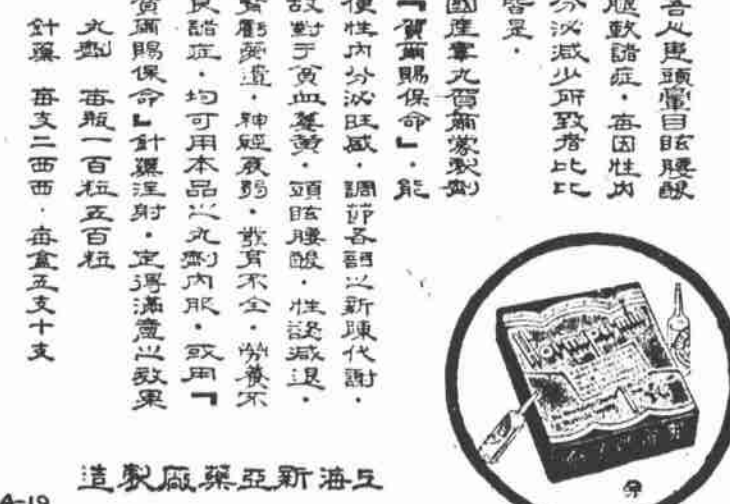 吾人患頭暈目眩腰酸
腿軟諸症．每因性內
分泌減少所致者比比
皆是．
國產睾丸賀爾蒙製劑
『賀爾賜保命』．能
使性內分泌旺盛．調節各語之新陳代謝．
故對于貧血萎黃．頭眩腰酸．性慾減退．
腎虧夢遺．神經衰弱．發育不全．營養不
良諸症．均可用本品之丸劑內服．或用『
賀爾賜保命』針藥注射．定得滿意之效果
丸劑 每瓶一百粒五百粒
針藥 每支二西西．每盒五支十支
造製廠藥亞新海上
4-19